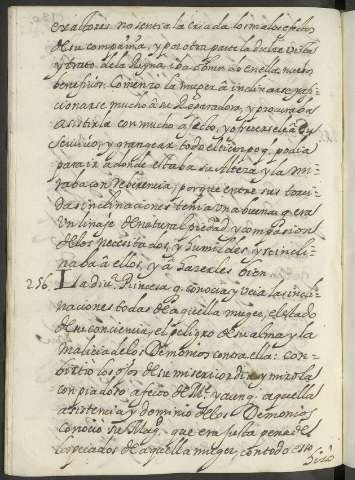 exaltores. no sentia la criada los malos efectos
de su compañia, y por otra parte la dulce vista
y trato de la Reyna iba obrando en ella nuevos
beneficios. Comenzò la muger à inclinarse y afi-
cionarse mucho à su Reparadora, y procuraba
asistirla con mucho afecto, y ofrecerse à su
servicio, y grangear todo el tiempo q. podia
para ir à donde estaba su Alteza y la mi-
raba con reberencia; porque entre sus torci-
das inclinaciones tenia una buena, q. era
un linaje de natural piedad y compasion
de los necesitados, y humildes, y se incli-
naba à ellos, y à hazerles bien.
256. La divi. Princesa, q. conocia y veia las incli-
naciones todas de aquella muger, el estado
de su conciencia, el peligro de su alma y la
malicia de los Demonios contra ella: con-
virtio los ojos de su misericordia, y mirola
con piadoso afecto de Me. y aunq. aquella
asistencia y dominio de los Demonios
conociò su Mag. que era justa pena de
los pecados de aquella muger, con todo eso
hizo